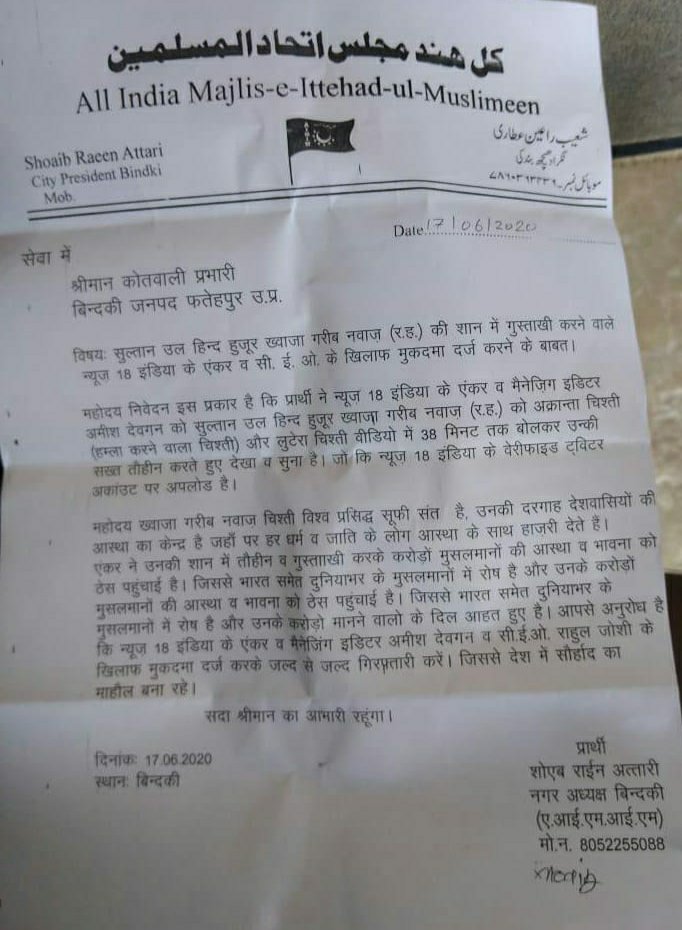 کل ہند مجلس اتحاد المسلمین
All India Majlis-e-Ittehad-ul-Muslimeen
Shoaib Raeen Attari
City President Bindki
Mob.
شعیب راعین عطاری
موبائل نمبر۔
Date 17/06/2020
सेवा में
श्रीमान कोतवाली प्रभारी
बिन्दकी जनपद फतेहपुर उ.प्र.
विषयः सुल्तान उल हिन्द हुजूर ख्वाजा गरीब नवाज़ (र.ह.) की शान में गुस्ताखी करने वाले
न्यूज 18 इंडिया के एंकर व सी. ई. ओ. के खिलाफ मुकदमा दर्ज करने के बाबत।
महोदय निवेदन इस प्रकार है कि प्रार्थी ने न्यूज 18 इंडिया के एंकर व मैनेज़िग इडिटर
अमीश देवगन को सुल्तान उल हिन्द हुजूर ख्वाजा गरीब नवाज़ (र.ह.) को अक्रान्ता चिश्ती
(हमला करने वाला चिश्ती) और लुटेरा चिश्ती वीडियो में 38 मिनट तक बोलकर उन्की
सख्त तौहीन करते हुए देखा व सुना है। जो कि न्यूज़ 18 इंडिया के वेरीफाइड ट्विटर
अकांउट पर अपलोड है।
महोदय ख्वाजा गरीब नवाज चिश्ती विश्व प्रसिद्ध सूफी संत है, उनकी दरगाह देशवासियों की
आस्था का केन्द्र है जहाँ पर हर धर्म व जाति के लोग आस्था के साथ हाज़री देते हैं।
एंकर ने उनकी शान में तौहीन व गुस्तााखी करके करोड़ों मुसलमानों की आस्था व भावना को
ठेस पहुंचाई है। जिससे भारत समेत दुनियाभर के मुसलमानों में रोष है और उनके करोड़ों
मुसलमानों की आस्था व भावना को ठेस पहुंचाई है। जिससे भारत समेत दुनियाभर के
मुसलमानों में रोष है और उनके करोड़ो मानने वालो के दिल आहत हुए है। आपसे अनुरोध है
कि न्यूज 18 इंडिया के एंकर व मैनेजिंग इडिटर अमीश देवगन व सी.ई.ओ. राहुल जोशी के
खिलाफ मुकदमा दर्ज करके जल्द से जल्द गिरफ़्तारी करें। जिससे देश में सौर्हाद का
माहौल बना रहे।
सदा श्रीमान का आभारी रहूंगा।
दिनांकः 17.06.2020
स्थानः बिन्दकी
प्रार्थी
शोएब राईन अत्तारी
नगर अध्यक्ष बिन्दकी
(ए.आई.एम.आई.एम)
मो.न. 8052255088